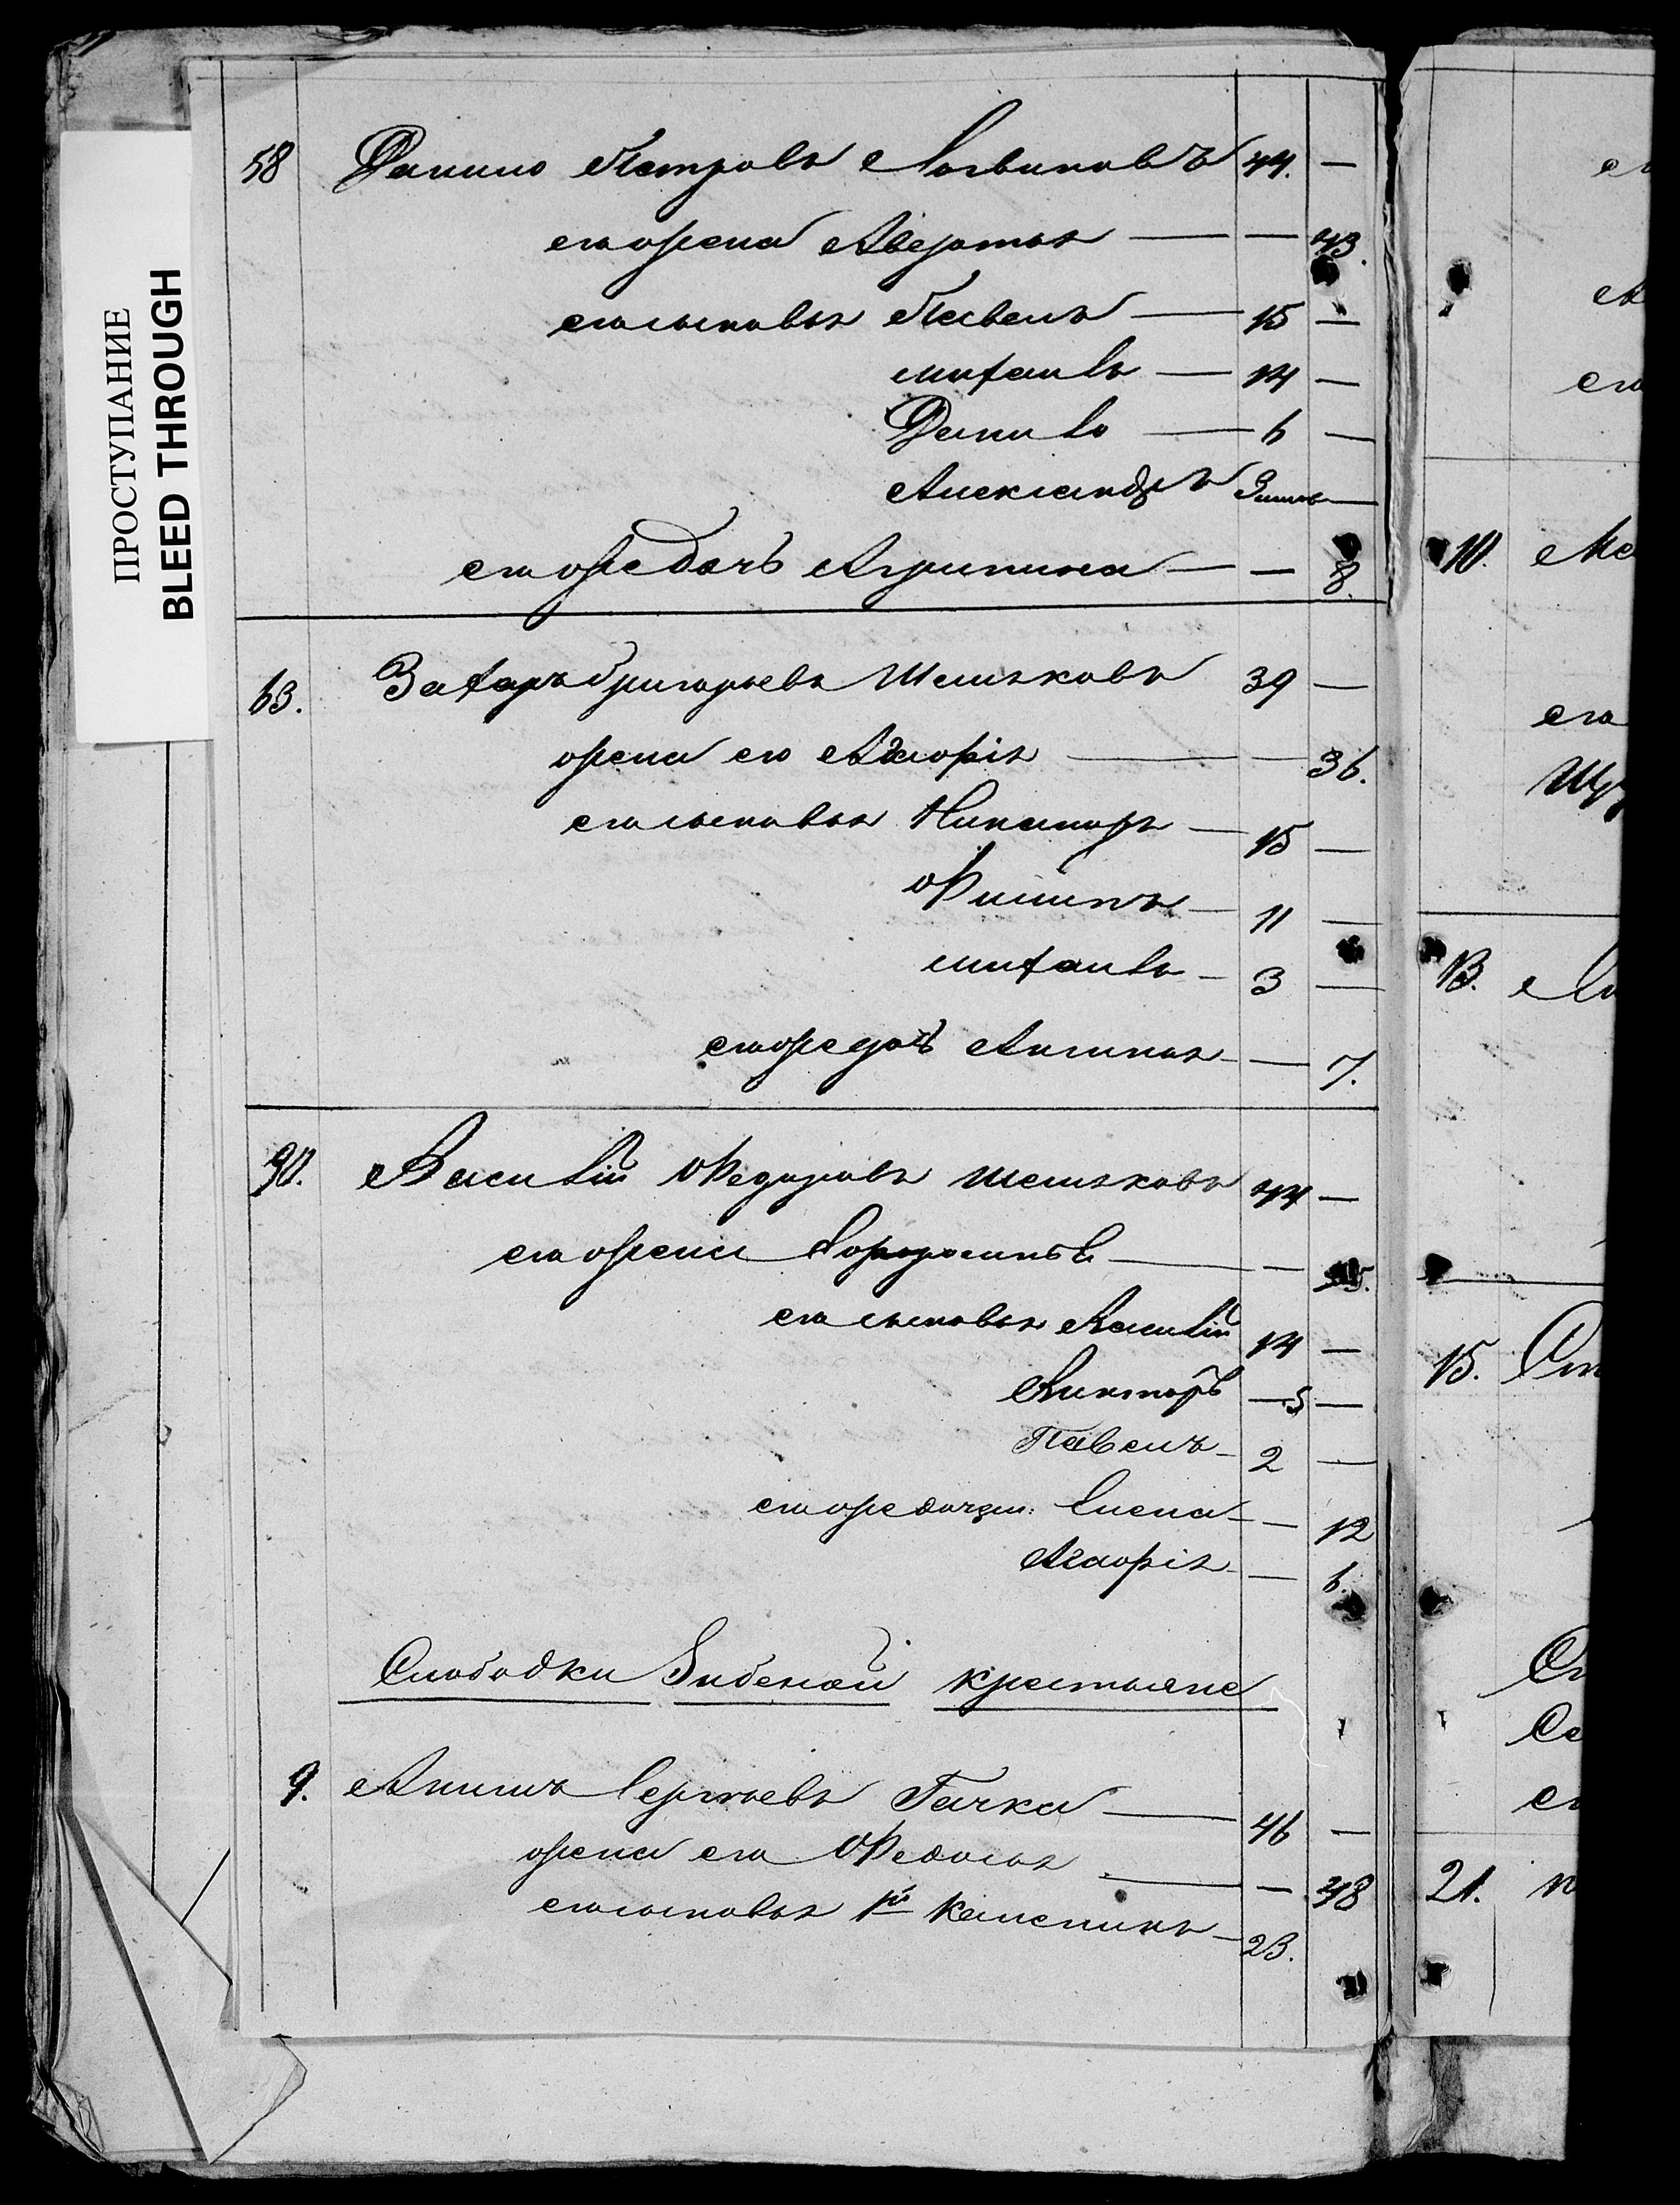 ПРОСТУПАНИЕ
BLEED THROUGH
58 Данило Петровъ Логвиновъ 44. —
его жена Авдотья — — 43.
его сыновья Павелъ — 15 —
Михаилъ — 14 —
Данило — 6 —
Александръ —
его же дочь Агрипина — — 8.
63. Захаръ Григорьевъ Шешковъ 39 —
жена его Агафія — — 36.
его сыновья Никаноръ — 15 —
Филипъ — 11 —
Михаилъ — 3 —
его же дочь Аксинья — — 7.
90. Василій Федоровъ Шешковъ 44 —
его жена — —
его сыновья Василій 14 —
Викторъ — 5 —
Павелъ — 2 —
его же дочери: Елена — — 12
Агафія — — 6.
Слободки крестьяне
9. Сергѣевъ Гачка — 46 —
жена его Федосья — — 48
его сыновья 1й — 23.
10.
его
13.
15.
21.